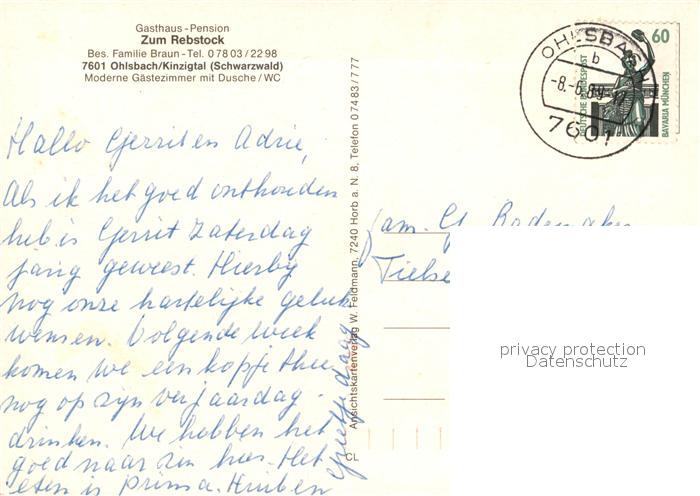 Gasthaus-Pension
Zum Rebstock
Bes. Familie Braun - Tel. 0 78 03 / 22 98
7601 Ohlsbach/Kinzigtal (Schwarzwald)
Moderne Gästezimmer mit Dusche / WC
OHLSBACH
b
-8.-6.89-
7601
60
DEUTSCHE BUNDESPOST
BAVARIA MÜNCHEN
Hallo Gerrit en Adrie,
Als ik het goed onthouden
heb is Gerrit Zaterdag
jarig geweest. Hierbij
nog onze hartelijke geluk
wensen. Volgende week
komen we een kopje thee
nog op zijn verjaardag
drinken. We hebben het
goed naar zin hier. Het
eten is prima.
Fam. G.
Ansichtskartenverlag W. Feldmann, 7240 Horb a. N. 8, Telefon 0 74 83 / 7 77
CL
privacy protection
Datenschutz